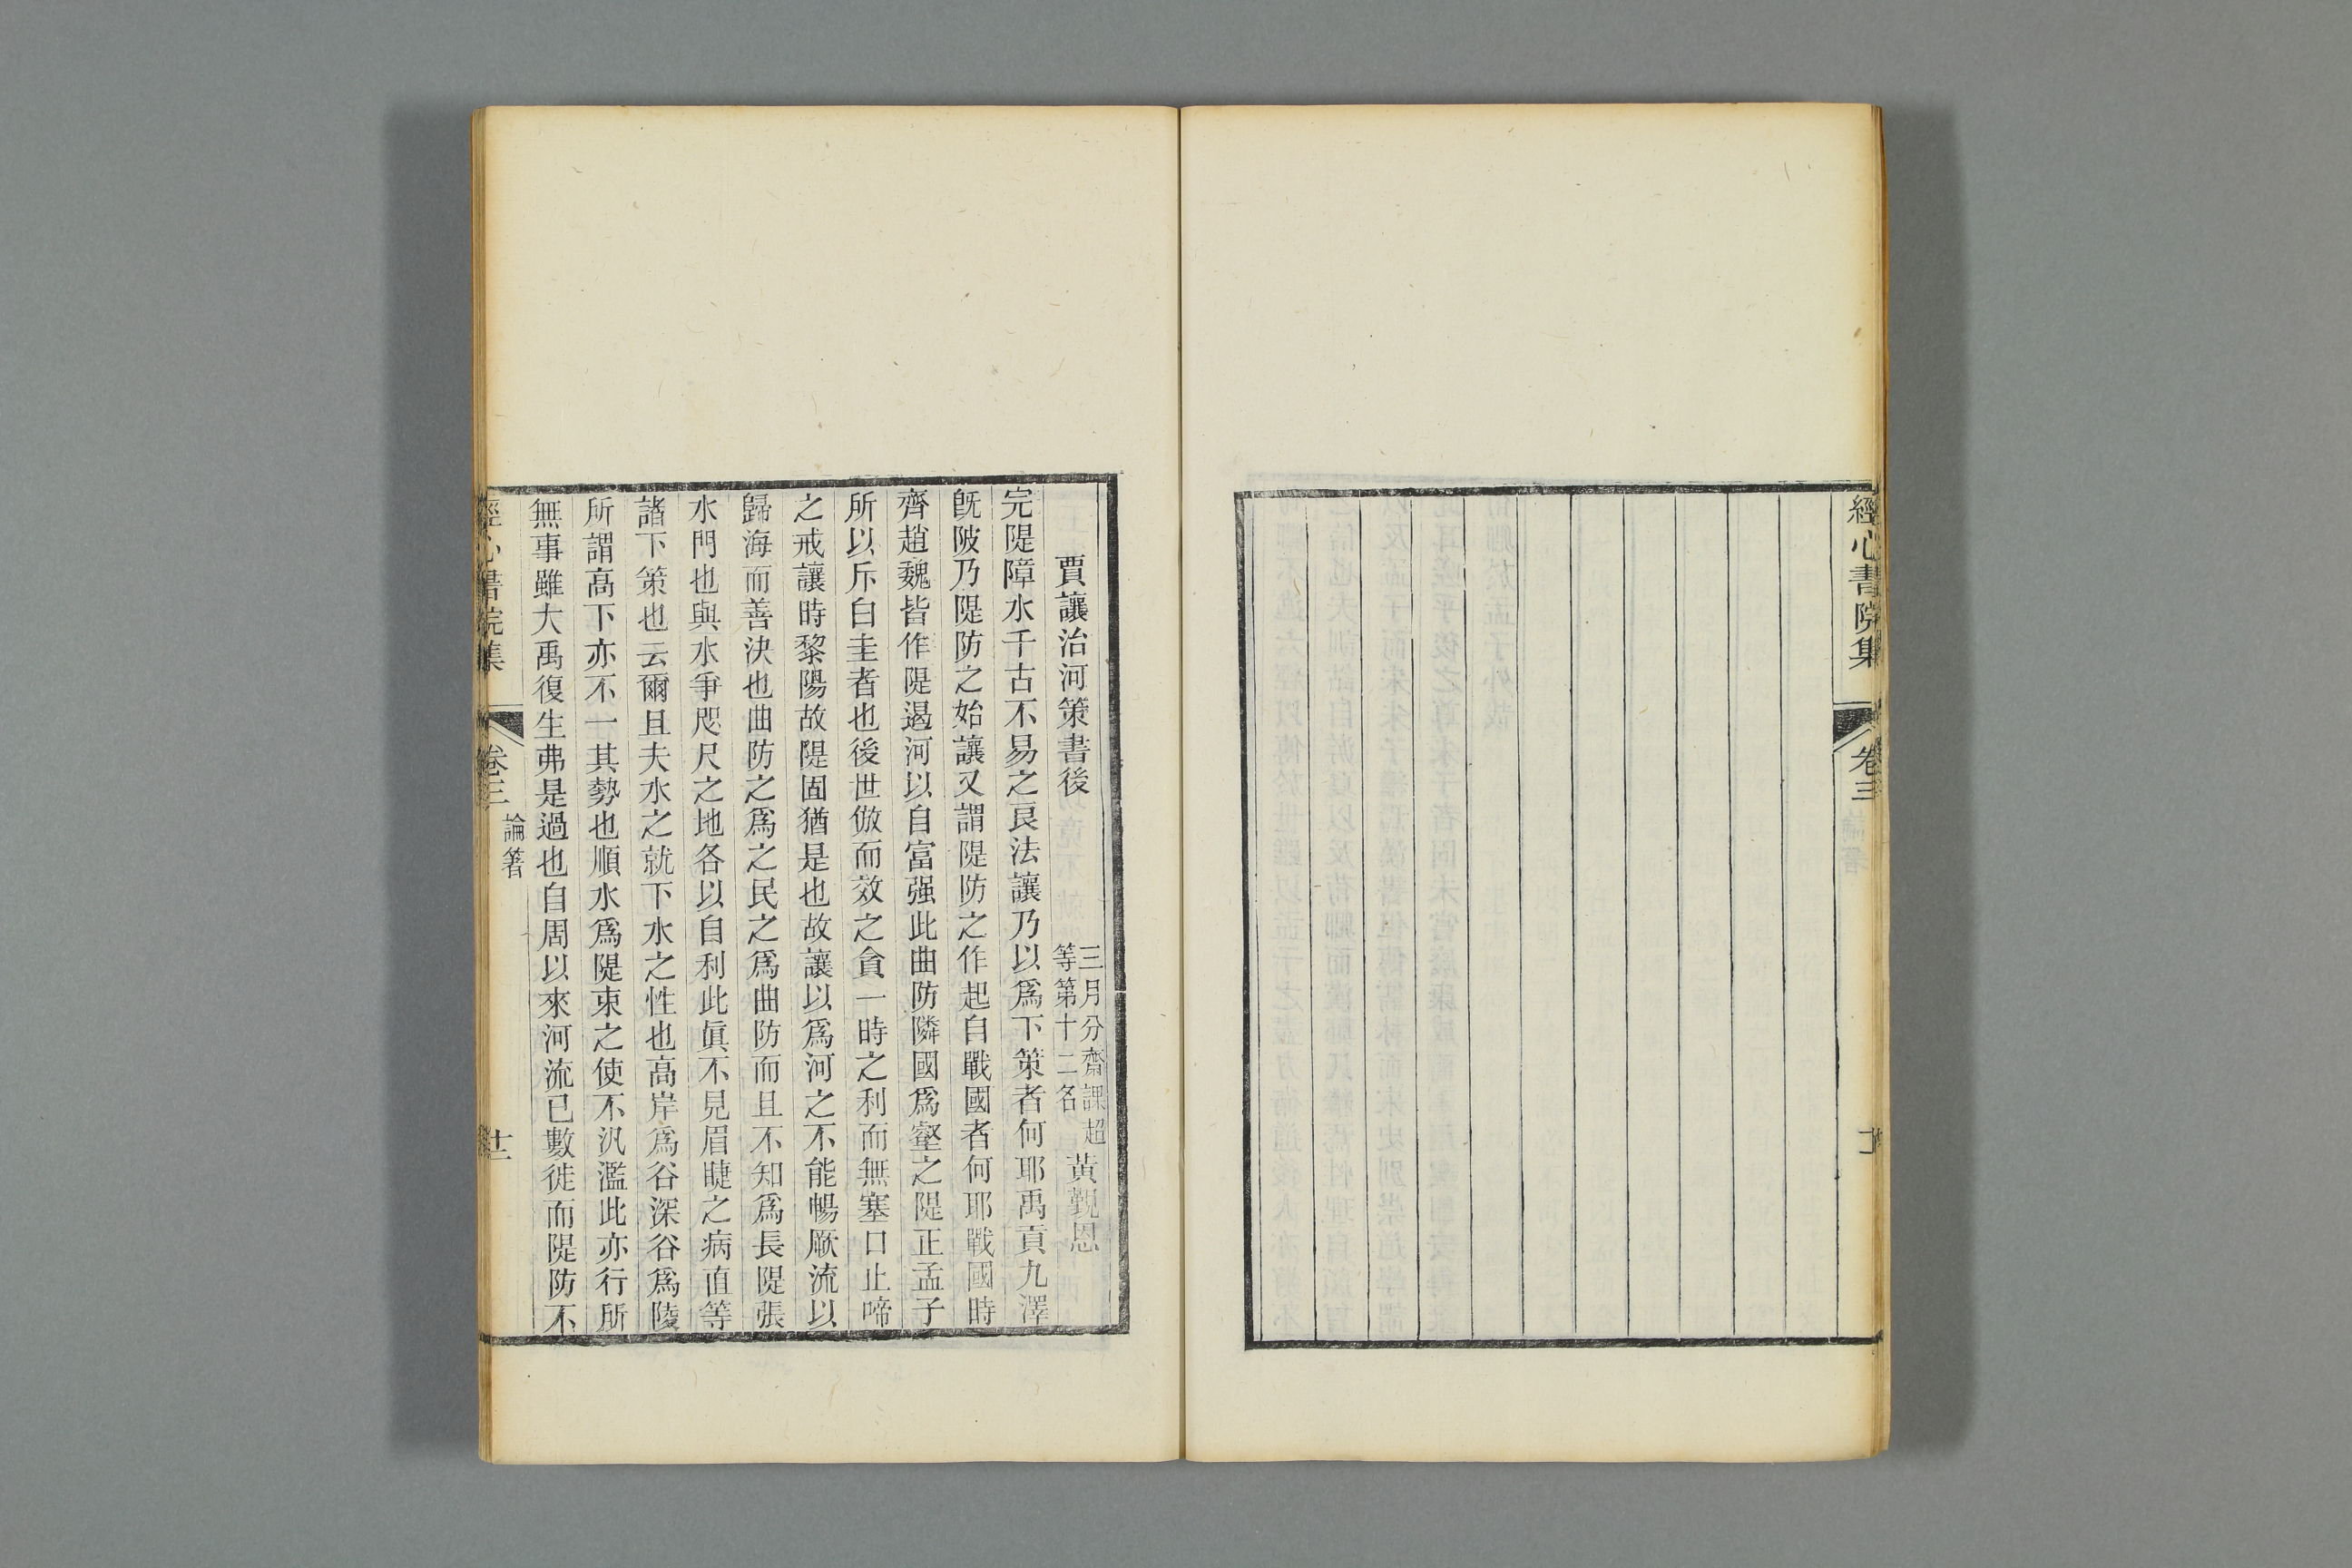 經心書院集
卷三
賈讓治河策書後
三月分齋課超
等第十二名
黃覲恩
完隄障水千古不易之良法讓乃以爲下策者何耶禹貢九澤
旣陂乃隄防之始讓又謂隄防之作起自戰國者何耶戰國時
齊趙魏皆作隄遏河以自富强此曲防隣國爲壑之隄正孟子
所以斥白圭者也後世倣而效之貪一時之利而無塞口止啼
之戒讓時黎陽故隄固猶是也故讓以爲河之不能暢厥流以
歸海而善決也曲防之爲之民之爲曲防而且不知爲長隄張
水門也與水爭咫尺之地各以自利此眞不見眉睫之病直等
諸下策也云爾且夫水之就下水之性也高岸爲谷深谷爲陵
所謂高下亦不一其勢也順水爲隄束之使不汎濫此亦行所
無事雖大禹復生弗是過也自周以來河流已數徙而隄防不
經心書院集
卷三
論箸
十二